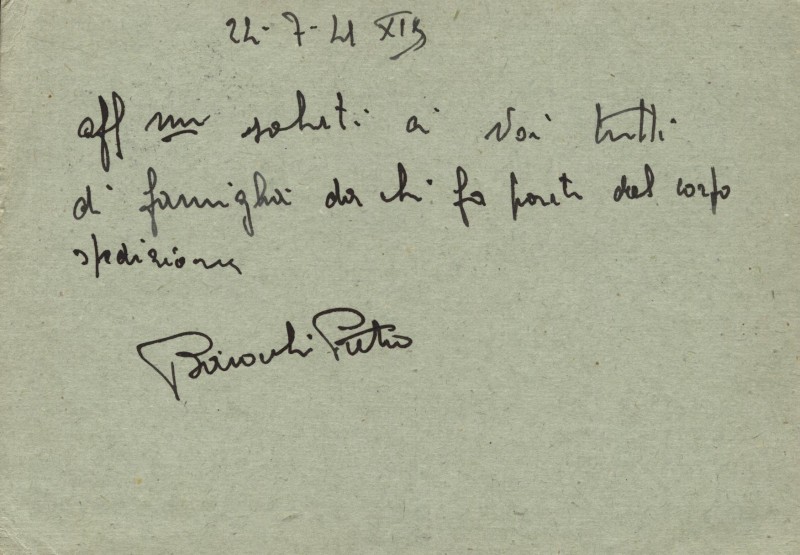 24-7-41 XIX
aff mi saluti a Voi tutti
di famiglia da chi fa parte del corpo
spedizione
Pietro